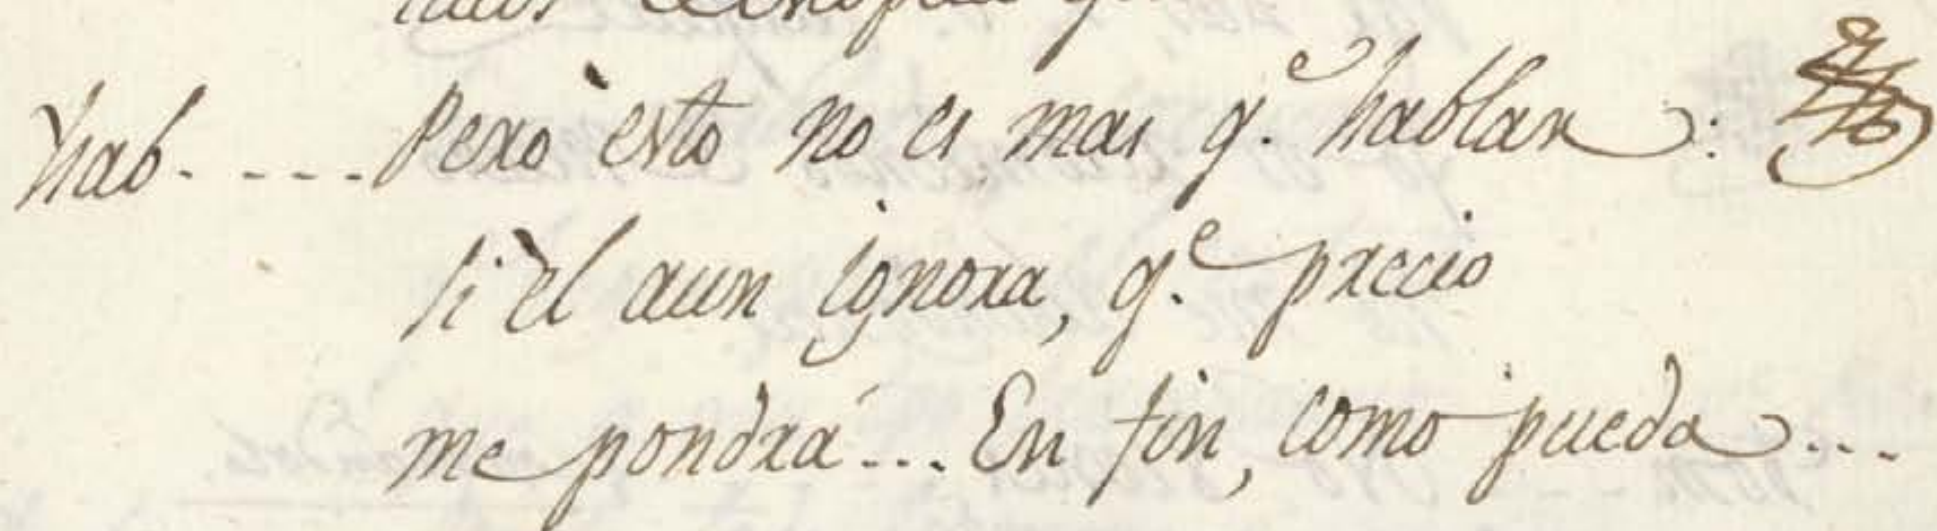 hab..... Pero èsto no es mas q.e hablar:
si èl aun ignora, q.e precio
me pondrá... En fin, como pueda...